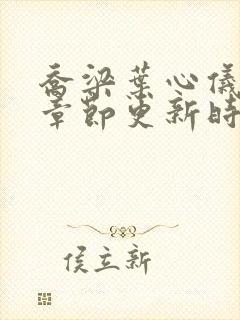 乔梁葉心儀
章節更新時
侯立新